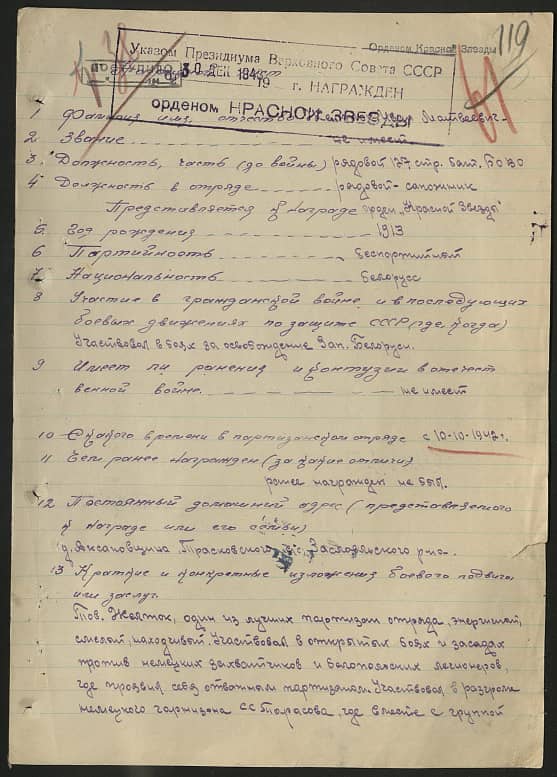 119
Орденом Красной Звезды
Указом Президиума Верховного Совета СССР
30 ДЕК 194 19 г. НАГРАЖДЕН
орденом КРАСНОЙ ЗВЕЗДЫ
1 Фамилия имя, отчество Матвеевич
2. Звание не имеет
3. Должность, часть (до войны) рядовой 127 стр. бат. БОВО
4 Должность в отряде рядовой-сапожник
Представляется к награде орден "Красной Звезды"
5 Год рождения 1913
6 Партийность беспартийный
7 Национальность Белорусс
8 Участие в гражданской войне и в последующих
боевых движениях по защите СССР (где, когда)
Участвовал в боях за освобождение Зап. Белоруси.
9 Имеет ли ранения и контузии в отечест
венной войне. не имеет
10 С какого времени в партизанском отряде с 10-10-1942 г.
11 Чем ранее награжден (за какие отличия)
ранее награжден не был.
12 Постоянный домашний адрес (представляемого
к награде или его семьи)
д. Аксаковщина Прасковского с/с, Заславского р-на.
13 Краткие и конкретные изложения боевого подвига
или заслуг.
Тов. один из лучших партизан отряда, энергичный,
смелой, находчивый. Участвовал в открытых боях и засадах
против немецких захватчиков и белопольских легионеров,
где проявил себя отважным партизаном. Участвовал в разгроме
немецкого гарнизона СС Тарасова, где вместе с группой